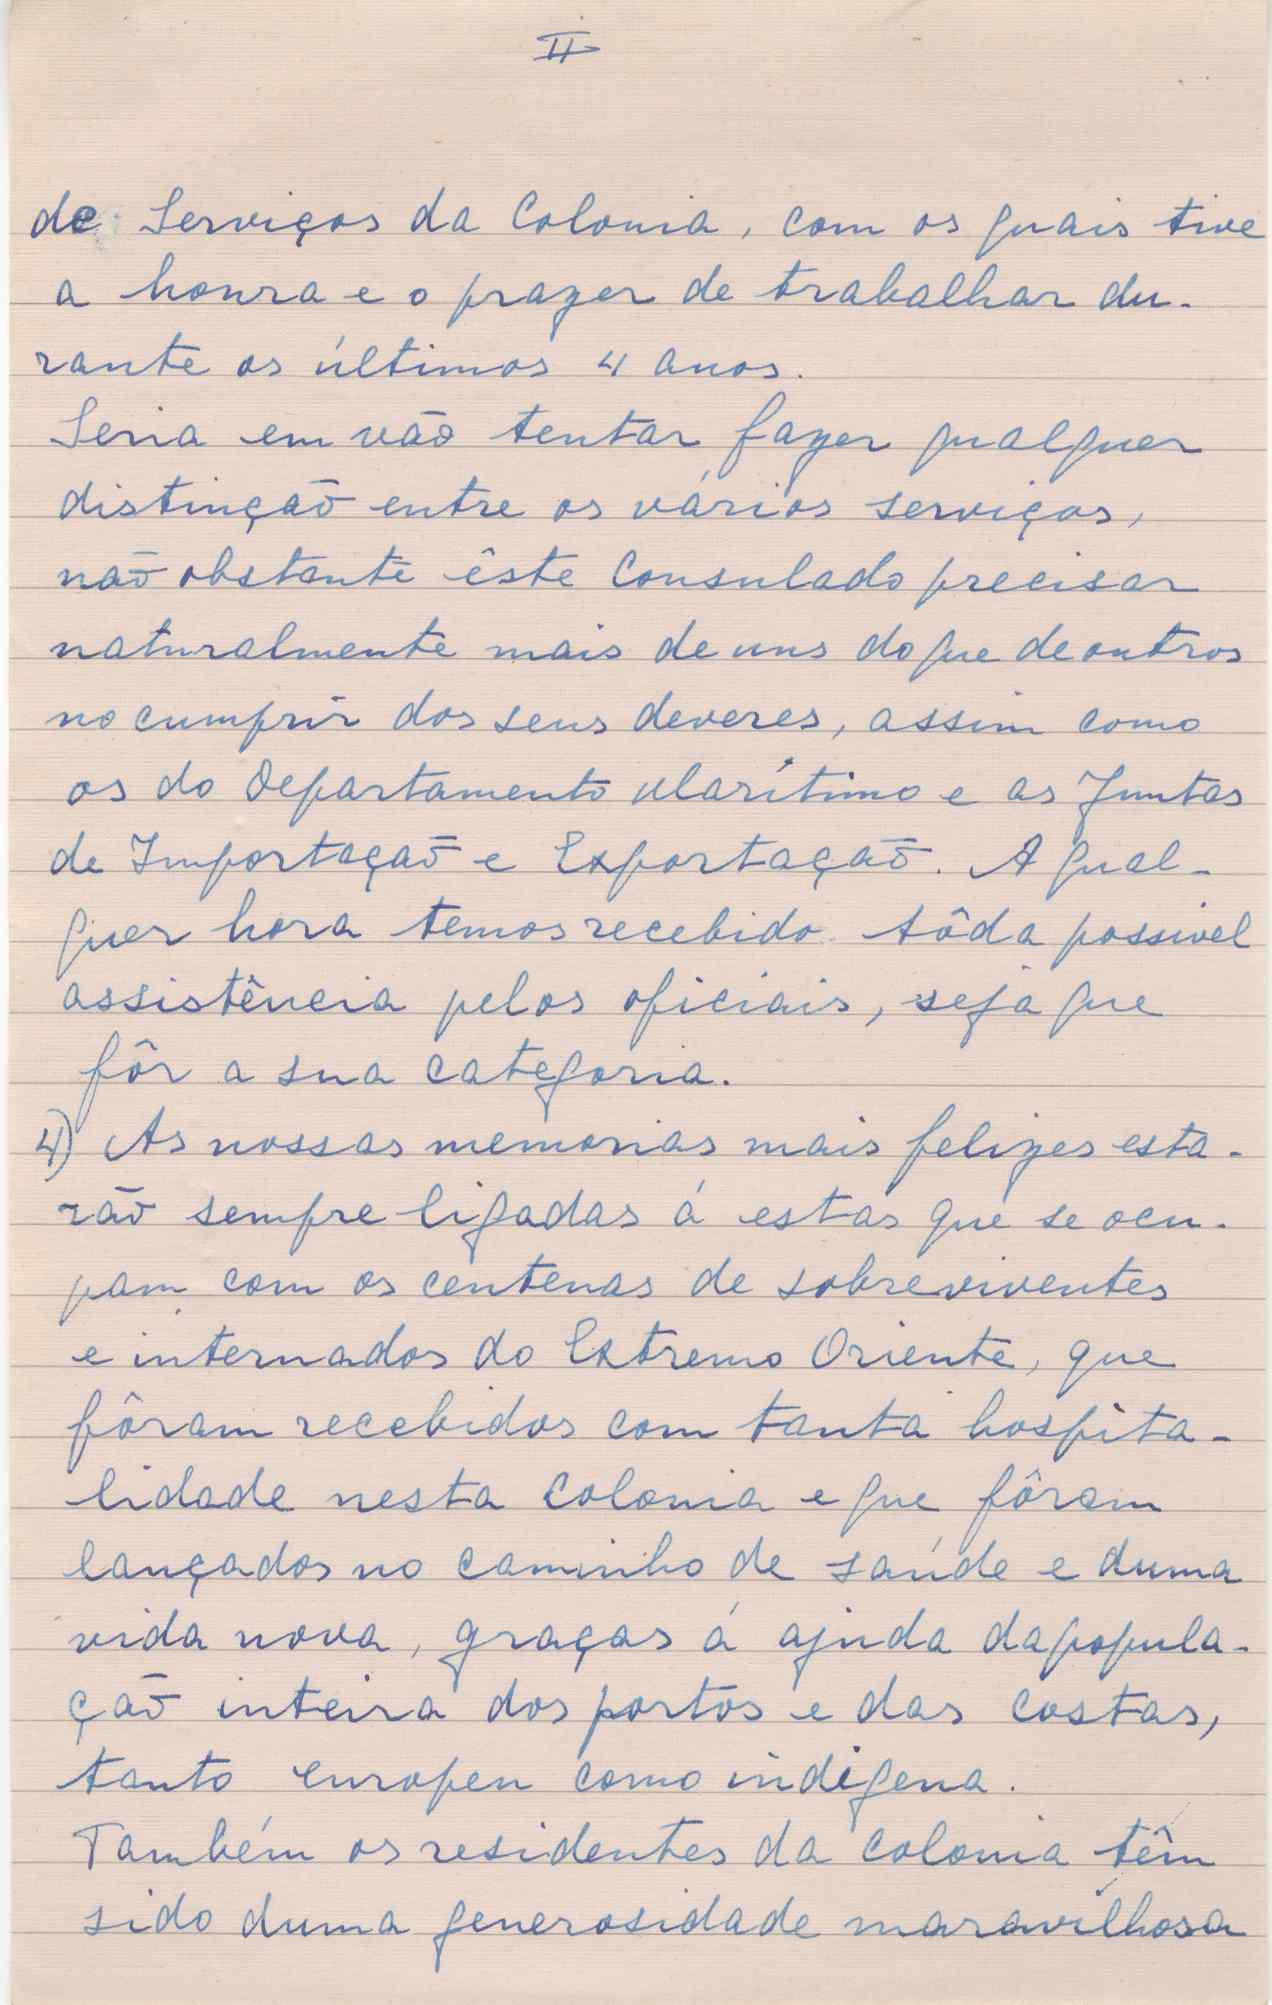 II
de Serviços da Colonia, com os quais tive
a honra e o prazer de trabalhar du-
rante os últimos 4 anos.
Seria em vão tentar fazer qualquer
distinção entre os vários serviços,
não obstante êste Consulado precisar
naturalmente mais de uns do que de outros
no cumprir dos seus deveres, assim como
os do Departamento Marítimo e as Juntas
de Importação e Exportação. A qual-
quer hora temos recebido tôda possivel
assistência pelos oficiais, seja que
fôr a sua categoria.
4) As nossas memorias mais felizes esta-
rão sempre ligadas á estas que se ocu-
pam com os centenas de sobreviventes
e internados do Extremo Oriente, que
fôram recebidos com tanta hospita-
lidade nesta Colonia e que fôram
lançados no caminho de saúde e duma
vida nova, graças á ajuda da popula-
ção inteira dos portos e das costas,
tanto europeu como indigena.
Também os residentes da Colonia têm
sido duma generosidade maravilhosa